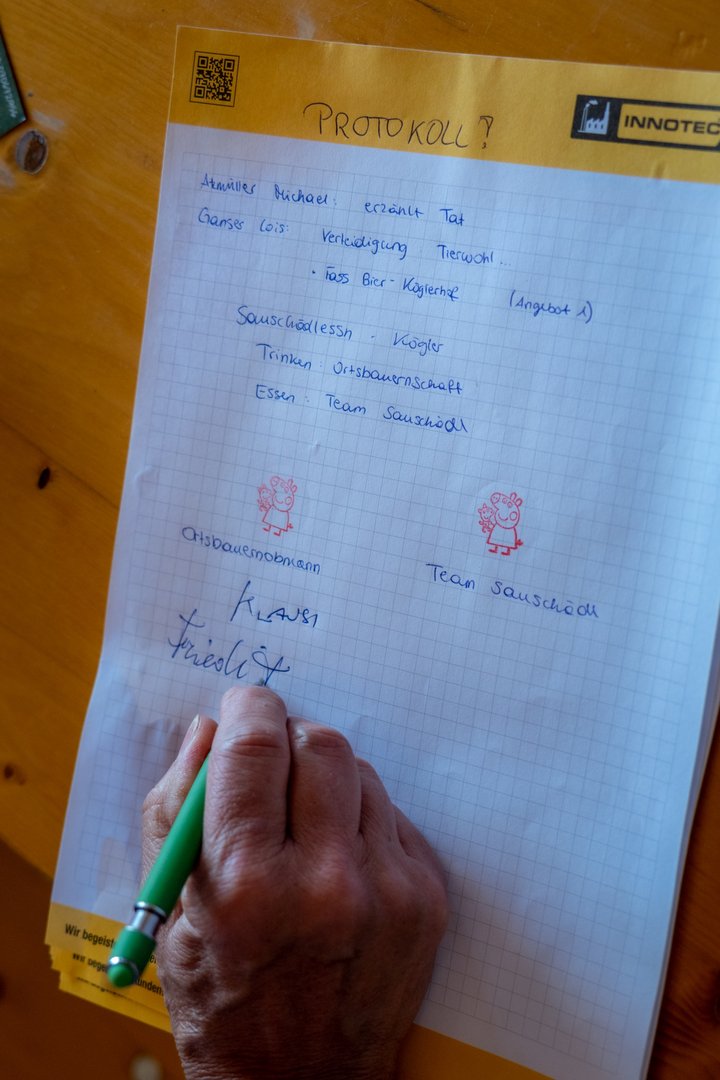 PROTOKOLL?
INNOTEC
Michael: erzählt Tat
Ganser Lois: Verteidigung Tierwohl...
• Fass Bier - Köglerhof (Angebot 1)
Sauschädlessn - Kögler
Trinken: Ortsbauernschaft
Essen: Team Sauschädl
Ortsbauernobmann
Team Sauschädl
KLAUSI
Wir begeist